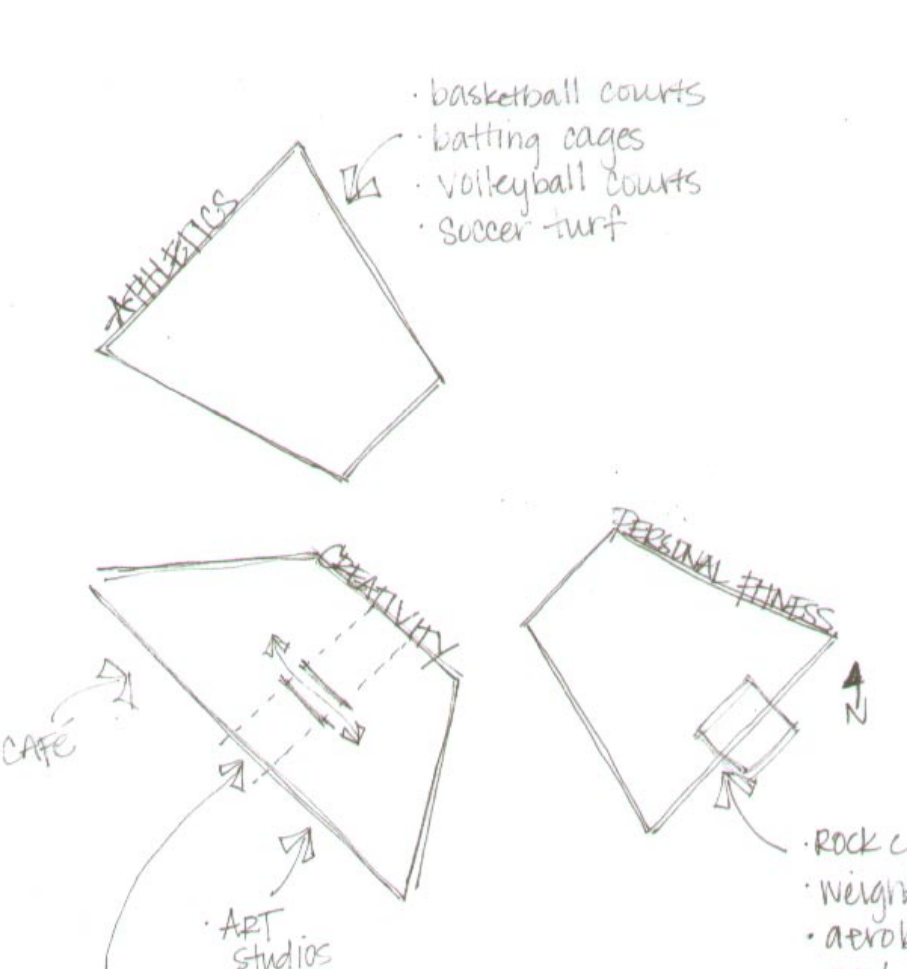 · basketball courts
· batting cages
· volleyball courts
· soccer turf
ATHLETICS
CREATIVITY
PERSONAL FITNESS
N
CAFÉ
· ROCK c
· weigh
· aerob
· ART
studios